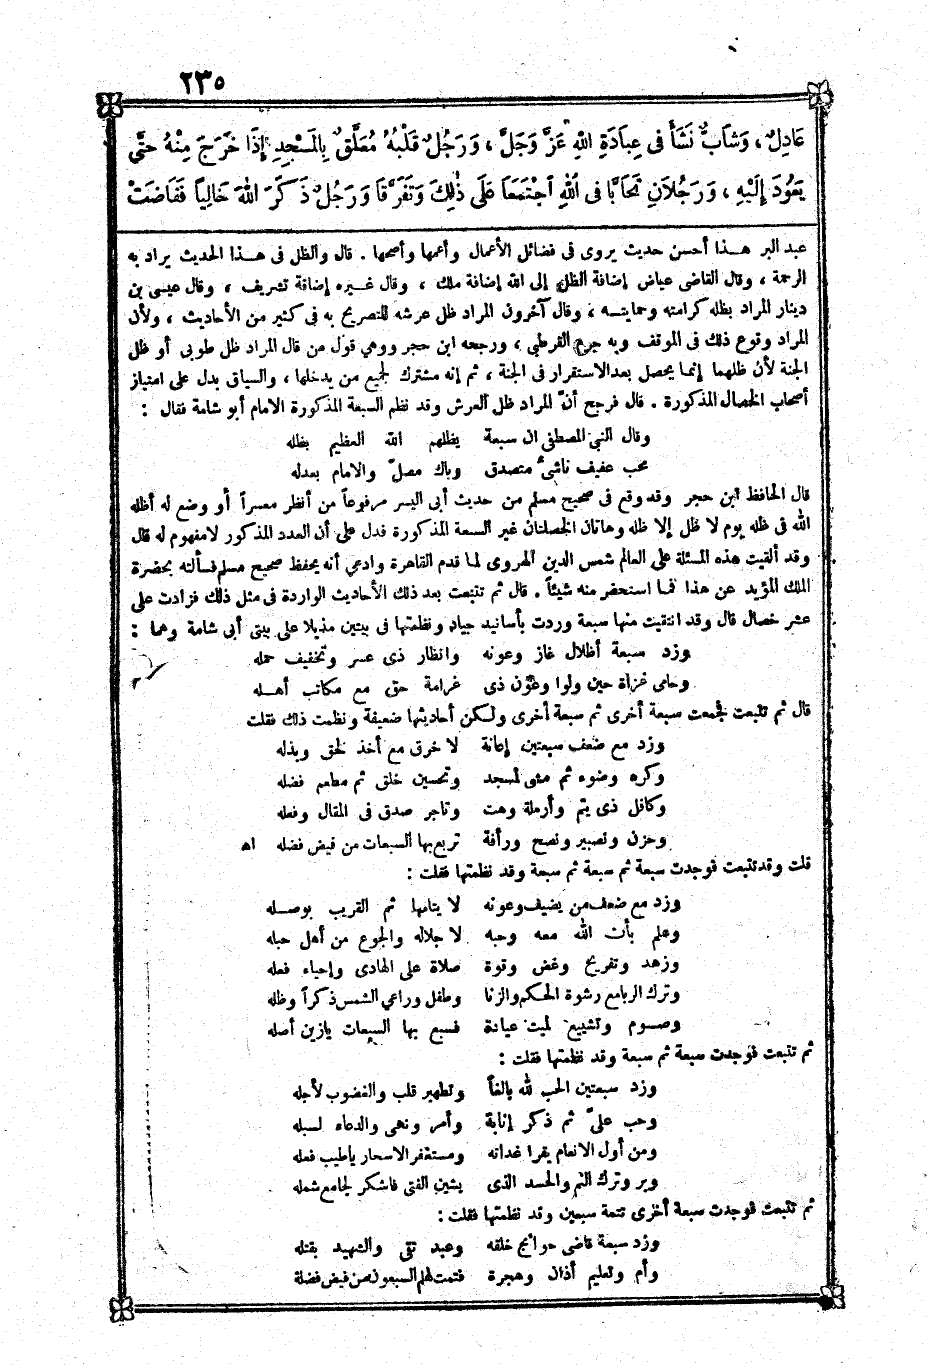 ٢٣٥
عَادِلٌ، وَشَابٌّ نَشَأَ فِى عِبَادَةِ اللهِ عَزَّ وَجَلَّ، وَرَجُلٌ قَلْبُهُ مُعَلَّقٌ بِالْمَسْجِدِ إِذَا خَرَجَ مِنْهُ حَتَّى
يَعُودَ إِلَيْهِ، وَرَجُلَانِ تَحَابَّا فِى اللهِ اجْتَمَعَا عَلَى ذٰلِكَ وَتَفَرَّقَا وَرَجُلٌ ذَكَرَ اللهَ خَالِياً فَفَاضَتْ
عبد البر هذا أحسن حديث يروى فى فضائل الأعمال وأعمها وأصحها . قال والظل فى هذا الحديث يراد به
الرحمة ، وقال القاضى عياض إضافة الظل إلى الله إضافة ملك ، وقال غيره إضافة تشريف ، وقال عيسى بن
دينار المراد بظله كرامته وحمايته ، وقال آخرون المراد ظل عرشه للتصريح به فى كثير من الأحاديث ، ولأن
المراد وقوع ذلك فى الموقف وبه جزم القرطبي ، ورجحه ابن حجر ووهي قول من قال المراد ظل طوبى أو ظل
الجنة لأن ظلهما إنما يحصل بعد الاستقرار فى الجنة ، ثم إنه مشترك لجميع من يدخلها ، والسياق يدل على امتياز
أصحاب الخصال المذكورة . قال فرجح أنّ المراد ظل العرش وقد نظم السبعة المذكورة الامام أبو شامة فقال :
وقال النبي المصطفى ان سبعة يظلهم الله العظيم بظله
محب عفيف ناشئ متصدق وباك مصلّ والامام بعدله
قال الحافظ ابن حجر وقد وقع فى صحيح مسلم من حديث أبى اليسر مرفوعاً من أنظر معسراً أو وضع له أظله
الله فى ظله يوم لا ظل إلا ظله وهاتان الخصلتان غير السبعة المذكورة فدل على أن العدد المذكور لامفهوم له قال
وقد ألقيت هذه المسئلة على العالم شمس الدين الهروى لما قدم القاهرة وادعي أنه يحفظ صحيح مسلم فسألته بحضرة
الملك المؤيد عن هذا فما استحضر منه شيئاً . قال ثم تتبعت بعد ذلك الأحاديث الواردة فى مثل ذلك فزادت على
عشر خصال قال وقد انتقيت منها سبعة وردت بأسانيد جياد ونظمتها فى بيتين مذيلا على بيتى أبى شامة وهما :
وزد سبعة أظلال غاز وعونه وانظار ذى عسر وتخفيف حمله
وحامى غزاة حين ولوا وعون ذى غرامة حق مع مكاتب أهله
قال ثم تتبعت فجمعت سبعة أخرى ثم سبعة أخرى ولكن أحاديثها ضعيفة ونظمت ذلك فقلت
وزد مع ضعف سبعتين إعانة لا خرق مع أخذ لحق وبذله
وكره وضوء ثم مشى لمسجد وتحسين خلق ثم مطعم فضله
وكافل ذى يتم وأرملة وهت وتاجر صدق فى المقال وفعله
وحزن وتصبير ونصح ورأفة تربع بها السبعات من فيض فضله اه
قلت وقد تتبعت فوجدت سبعة ثم سبعة ثم سبعة وقد نظمتها فقلت :
وزد مع ضعف من يضيف وعونه لا يتامها ثم القريب بوصله
وعلم بأن الله معه وحبه لا جلاله والجوع من أهل حبله
وزهد وتفريج وغض وقوة صلاة على الهادى وإحياء فعله
وترك الربا مع رشوة الحكم والزنا وطفل وراعي الشمس ذكراً وظله
وصوم وتشييع لميت عيادة فسبع بها السبعات يازين أصله
ثم تتبعت فوجدت سبعة ثم سبعة وقد نظمتها فقلت :
وزد سبعتين الحب لله بالغاً وتطهير قلب والغضوب لأجله
وحب عليّ ثم ذكر إنابة وأمر ونهى والدعاء لسبله
ومن أول الانعام يقرا غداته ومستغفر الاسحار ياطيب فعله
وبر وترك النم والحسد الذى يشين الفتى فاشكر لجامع شمله
ثم تتبعت فوجدت سبعة أخرى تتمة سبعين وقد نظمتها فقلت :
وزد سبعة قاضى حوائج خلقه وعبد تقى والشهيد بقتله
وأم وتعليم أذان وهجرة فتمت لهم السبعون من فيض فضله